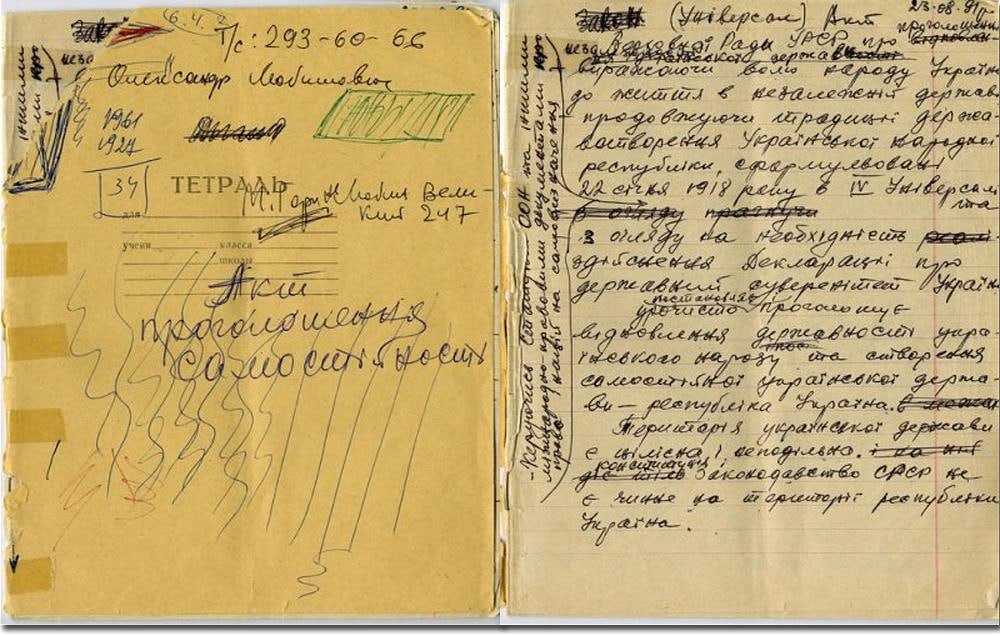 6.4.2
Т/с: 293-60-66
Олександр Любимович
1961
1927
34
ТЕТРАДЬ
М. Гарин Любин Вели-
кий 247
для
учени класса
школы
Акт
проголошення
самостійності
23.08.91 р.
Закон (Універсал) Акт
проголошення
неза
Верховної Ради УРСР про
української державності
виражаючи волю народу Україн
до життя в незалежній державі
продовжуючи традиції держа-
вотворення Української Народної
республіки, сформульовані
22 січня 1918 року в IV Універсалі
та
в огляду прагнучи
з огляду на необхідність
здійснення Декларації про
державний суверенітет Україн
постановляє
урочисто проголошує
відновлення державності укра-
їнського народу та створення
самостійної української держа-
ви — республіка Україна. в межах
Територія української держави
є цілісна і неподільна.
конституція і
Законодавство СРСР не
є чинне на території республіки
Україна.
- керуючись Статутом ООН та іншими
міжнародно-правовими документами про
право націй на самовизначення